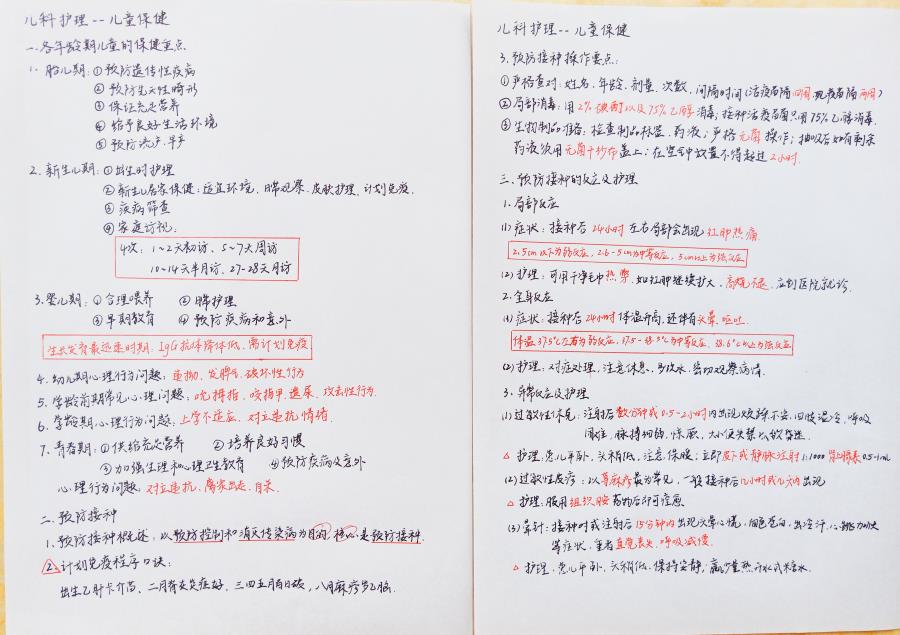 儿科护理--儿童保健
一.各年龄期儿童的保健重点
1. 胎儿期:①预防遗传性疾病
②预防先天性畸形
③保证充足营养
④给予良好生活环境
⑤预防流产、早产
2. 新生儿期:①出生时护理
②新生儿居家保健:适宜环境、日常观察、皮肤护理、计划免疫.
③疾病筛查
④家庭访视:
4次:1~2天初访、5~7天周访
10~14天半月访、27-28天月访
3.婴儿期:①合理喂养 ②日常护理
③早期教育 ④预防疾病和意外
生长发育最迅速时期:IgG抗体降低,需计划免疫
4. 幼儿期心理行为问题:违拗、发脾气、破坏性行为
5. 学龄前期常见心理问题:吮拇指、咬指甲、遗尿、攻击性行为
6. 学龄期心理行为问题:上学不适应、对立违抗情绪
7. 青春期:①供给充足营养 ②培养良好习惯
③加强生理和心理卫生教育 ④预防疾病及意外
心理行为问题:对立违抗、离家出走、自杀.
二.预防接种
1.预防接种概述:以预防控制和消灭传染病为目的,核心是预防接种.
2.计划免疫程序口诀:
出生乙肝卡介苗、二月脊灰炎症好、三四五月百白破,八月麻疹岁乙脑.
儿科护理--儿童保健
3.预防接种操作要点:
①严格查对:姓名、年龄、剂量、次数、间隔时间(活疫苗隔四周,死疫苗隔两周)
②局部消毒:用2%碘酊以及75%乙醇消毒;接种活疫苗只用75%乙醇消毒.
③生物制品准备:检查制品标签、药液;严格无菌操作;抽吸后如有剩余
药液须用无菌干纱布盖上;在空气中放置不得超过2小时.
三.预防接种的反应及护理
1.局部反应
(1)症状:接种后24小时左右局部会出现红肿热痛.
2.5cm以下为弱反应,2.6-5cm为中等反应,5cm以上为强反应
(2)护理:可用干净毛巾热敷,如红肿继续扩大、高烧不退、应到医院就诊.
2.全身反应
(1)症状:接种后24小时体温升高,还伴有头晕、呕吐.
体温37.5℃左右为弱反应,37.5-38.5℃为中等反应,38.6℃以上为强反应
(2)护理:对症处理,注意休息、多饮水、密切观察病情.
3.异常反应及护理
(1)过敏性休克:注射后数分钟或0.5-2小时内出现烦躁不安、四肢湿冷、呼吸
困难、脉搏细弱、惊厥、大小便失禁以致昏迷.
△护理:患儿平卧、头稍低、注意保暖;立即皮下或静脉注射1:1000肾上腺素0.5-1mL
(2)过敏性皮疹:以荨麻疹最为常见,一般接种后几小时或几天内出现
△护理:服用组织胺药物后即可痊愈
(3)晕针:接种时或注射后15分钟内出现头晕心慌、面色苍白、出冷汗、心跳加快
等症状,重者直觉丧失、呼吸减慢.
△护理:患儿平卧、头稍低、保持安静,需少量热开水或糖水.